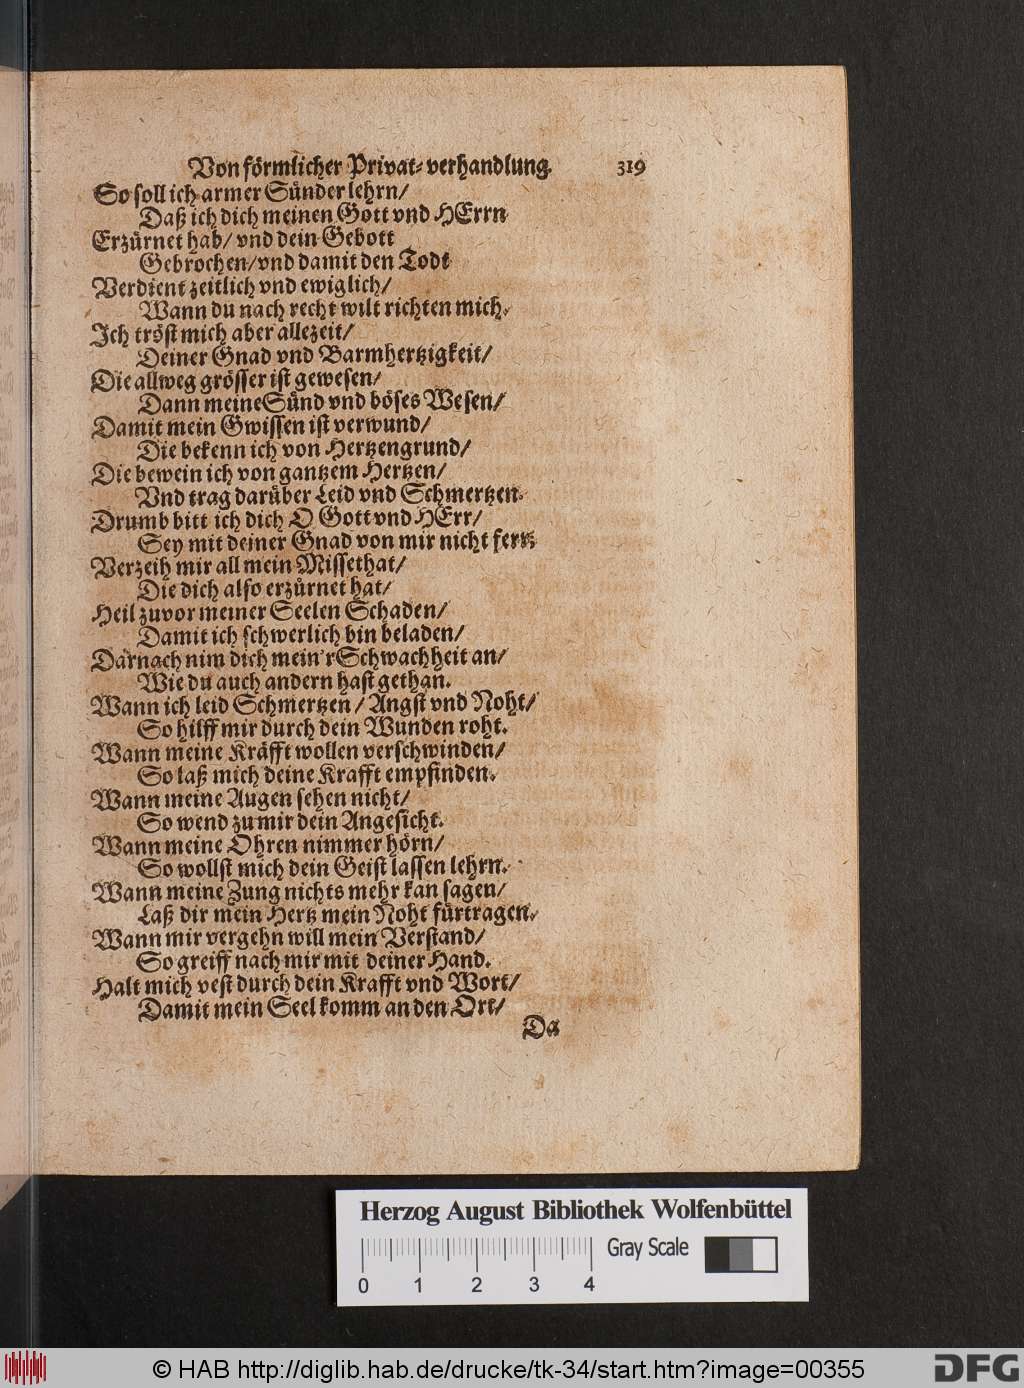 Von förmlicher Privat-verhandlung. 319
So soll ich armer Sünder lehrn/
Daß ich dich meinen Gott vnd HErrn
Erzürnet hab/ vnd dein Gebott
Gebrochen/vnd damit den Todt
Verdient zeitlich vnd ewiglich/
Wann du nach recht wilt richten mich.
Ich tröst mich aber allezeit/
Deiner Gnad vnd Barmhertzigkeit/
Die allweg grösser ist gewesen/
Dann meine Sünd vnd böses Wesen/
Damit mein Gwissen ist verwund/
Die bekenn ich von Hertzengrund/
Die bewein ich von gantzem Hertzen/
Vnd trag darüber Leid vnd Schmertzen.
Drumb bitt ich dich O Gott vnd HErr/
Sey mit deiner Gnad von mir nicht ferr.
Verzeih mir all mein Missethat/
Die dich also erzürnet hat/
Heil zuvor meiner Seelen Schaden/
Damit ich schwerlich bin beladen/
Darnach nim dich mein'r Schwachheit an/
Wie du auch andern hast gethan.
Wann ich leid Schmertzen / Angst vnd Noht/
So hilff mir durch dein Wunden roht.
Wann meine Kräfft wollen verschwinden/
So laß mich deine Krafft empfinden.
Wann meine Augen sehen nicht/
So wend zu mir dein Angesicht.
Wann meine Ohren nimmer hörn/
So wollst mich dein Geist lassen lehrn.
Wann meine Zung nichts mehr kan sagen/
Laß dir mein Hertz mein Noht fürtragen.
Wann mir vergehn will mein Verstand/
So greiff nach mir mit deiner Hand.
Halt mich vest durch dein Krafft vnd Wort/
Damit mein Seel komm an den Ort/
Da
Herzog August Bibliothek Wolfenbüttel
Gray Scale
0 1 2 3 4
© HAB http://diglib.hab.de/drucke/tk-34/start.htm?image=00355
DFG